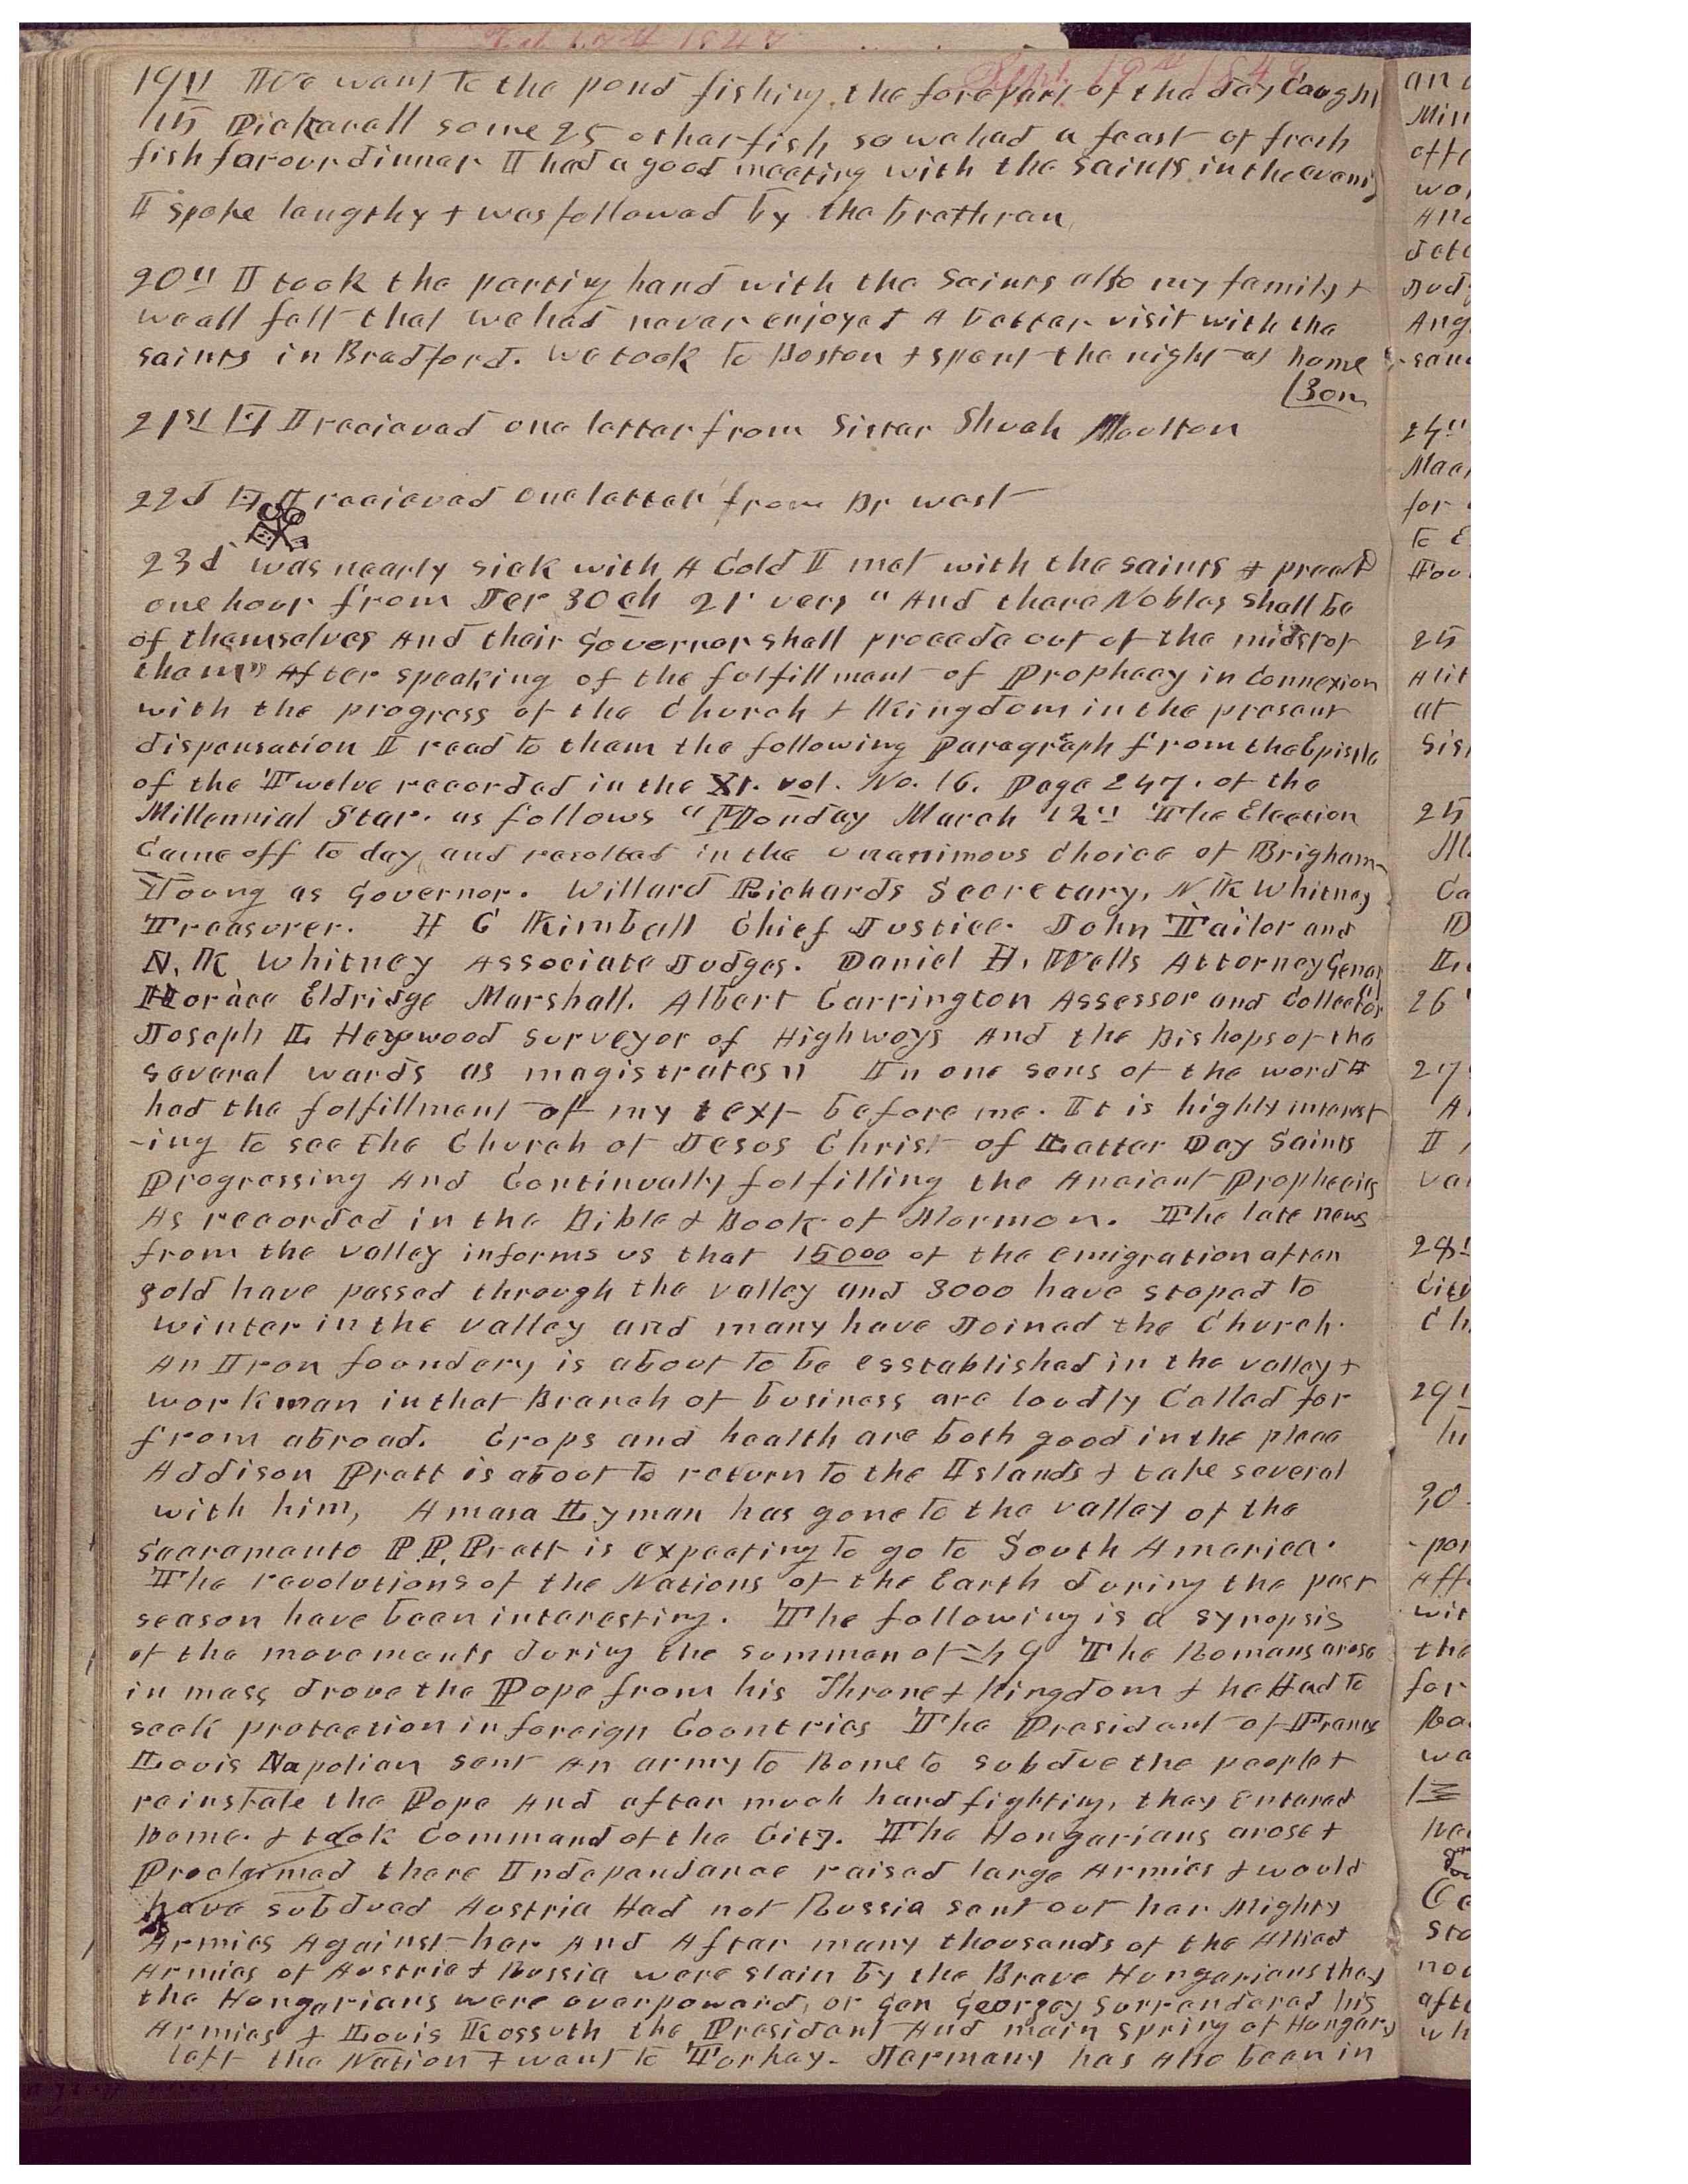 Sept. 19th 1849
19th We went to the pond fishing the forepart of the day Caught
15 Pickarall some 25 other fish so we had a feast of fresh
fish for our dinner I had a good meeting with the saints in the evening
I spoke lengthy & was followed by the brethren
20th I took the parting hand with the saints also my family &
we all felt that we had never enjoyed A better visit with the
saints in Bradford. We took to Boston & spent the night at home
13 on
21st I recieved one letter from Sister Shuah Moulton
22d I recieved one letter from Br West
23d was nearly sick with A Cold I met with the saints & preachd
one hour from Jer 30 ch 21 vers "And there Nobles shall be
of themselves And their Governor shall proceede out of the midst of
them" After speaking of the fulfillment of Prophecy in Connexion
with the progress of the Church & Kingdom in the present
dispensation I read to them the following Paragraph from the Epistle
of the Twelve recorded in the XI. vol. No. 16. Page 247. of the
Millennial Star. as follows "Monday March 12th The Election
Came off to day and resulted in the unanimous choice of Brigham
Young as Governor. Willard Richards Secretary, N K Whitney
Treasurer. H C Kimball Chief Justice. John Tailor and
N. K Whitney Associate Judges. Daniel H. Wells Attorney General
Horace Eldridge Marshall. Albert Carrington Assessor and Collector
Joseph L Heywood Surveyor of Highways And the Bishops of the
several wards as magistrates" In one sens of the word I
had the fulfillment of my text before me. It is highly interest
-ing to see the Church of Jesus Christ of Latter Day Saints
Progressing And Continually fulfilling the Ancient Prophecies
As recorded in the Bible & Book of Mormon. The late news
from the valley informs us that 15000 of the emigration after
gold have passed through the valley and 3000 have stoped to
winter in the valley and many have Joined the Church.
An Iron foundery is about to be esstablished in the valley &
workman in that Branch of business are loudly Called for
from abroad. Crops and health are both good in the place
Addison Pratt is about to return to the Islands & take several
with him, Amasa Lyman has gone to the valley of the
Sacramanto P. P. Pratt is expecting to go to South America.
The revolutions of the Nations of the Earth during the past
season have been interesting. The following is a synopsis
of the movements during the summer of 49 The Romans arose
in mass drove the Pope from his Throne & Kingdom & he Had to
seek protection in foreign Countries The President of France
Louis Napolian sent An army to Rome to subdue the people &
reinstate the Pope And after much hard fighting, they Entered
Rome. & took Command of the City. The Hungarians arose &
Proclaimed there Independance raised large Armies & would
have subdued Austria Had not Russia sent out her Mighty
Armies Against her And After many thousands of the Allied
Armies of Austria & Russia were slain by the Brave Hungarians they
the Hungarians were overpowerd, or Gen Georgey Surrendered his
Armies & Louis Kossuth the President And main spring of Hungary
left the Nation & went to Torkey. Jermany has also been in